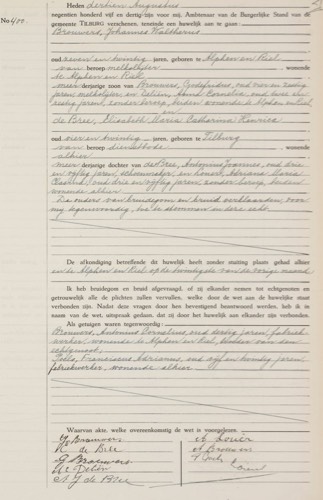 No 400.
Heden dertien Augustus
negentien honderd vijf en dertig zijn voor mij, Ambtenaar van de Burgerlijke Stand van de
gemeente TILBURG verschenen, teneinde een huwelijk aan te gaan:
Brouwers, Johannes Waltherus
oud zeven en twintig jaren, geboren te Alphen en Riel
van beroep melkslijter
te Alphen en Riel
meerderjarige zoon van Brouwers, Godefridus, oud vier en zestig
jaren, melkslijter en
zestig jaren, zonder beroep, beiden wonende te Alphen en Riel,
en
de Bree, Elisabeth Maria Catharina Henrica
oud vier en twintig jaren, geboren te Tilburg
van beroep dienstbode
alhier
meerderjarige dochter van de Bree, Antonius Joannes, oud drie
en vijftig jaren, schoenmaker, en Adriana Maria
oud drie en vijftig jaren, zonder beroep, beiden
wonende alhier.
De ouders van bruidegom en bruid verklaarden, voor
mij tegenwoordig, toe te stemmen in deze echt.
De afkondiging betreffende dit huwelijk heeft zonder stuiting plaats gehad alhier
en te Alphen en Riel op de van de vorige maand
Ik heb bruidegom en bruid afgevraagd, of zij elkander nemen tot echtgenoten en
getrouwelijk alle de plichten zullen vervullen, welke door de wet aan de huwelijke staat
verbonden zijn. Nadat deze vragen door hen bevestigend beantwoord werden, heb ik in
naam van de wet, uitspraak gedaan, dat zij door het huwelijk aan elkander zijn verbonden.
Als getuigen waren tegenwoordig:
Brouwers, Antonius Cornelius, oud dertig jaren, fabriek-
werker, wonende te Alphen en Riel, broeder van den
echtgenoot,
Franciscus Adrianus, oud vijf en twintig jaren,
fabriekwerker, wonende alhier.
Waarvan akte, welke overeenkomstig de wet is voorgelezen.
J Brouwers
de Bree
G Brouwers
A J de Bree
A Brouwers